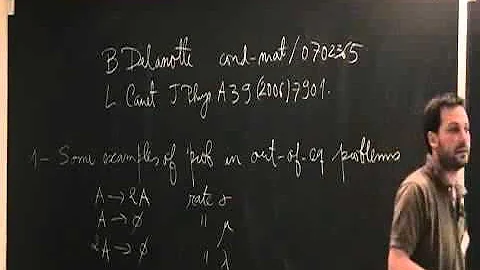 B Delamotte cond-mat/0702365
L Canet J Phys A 39 (2006) 7901.
1- Some examples of pub in out-of-eq problems
A → 2A rate σ
A → ∅ " μ
2A → ∅ " λ